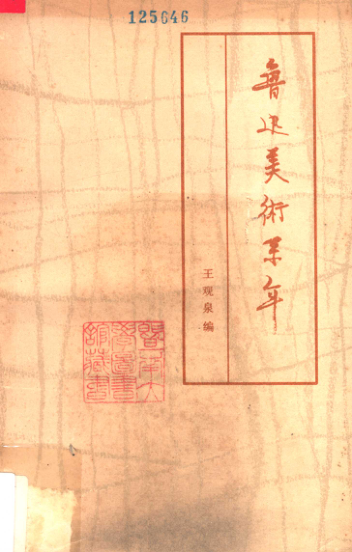 125646
鲁迅美術系年
王观泉编
暨南大
學圖書
館藏書